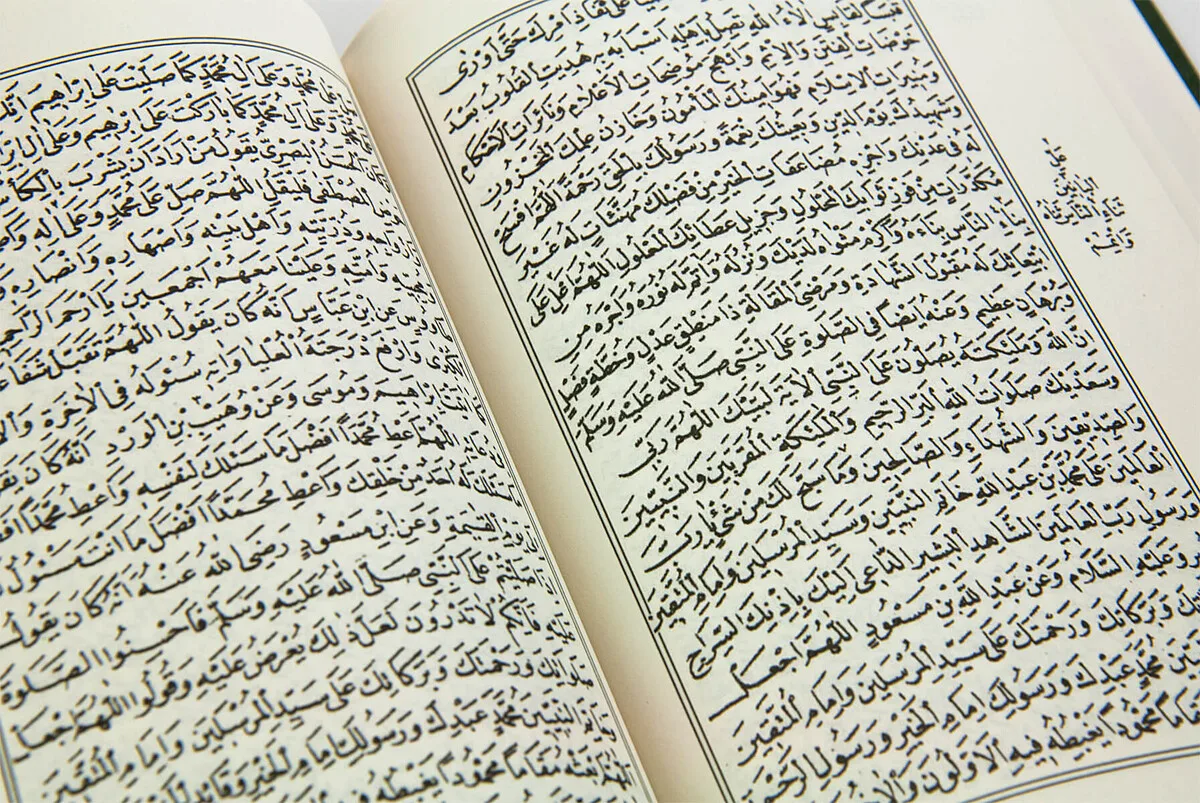 قبسا لقابس آلاء الله تصل باهله اسبابه به هديت القلوب بعد
خوضات الفتن والاثم وانهج موضحات الاعلام ونائرات الاحكام
ومنيرات الاسلام فهو امينك المأمون وخازن علمك المخزون
وشهيدك يوم الدين وبعيثك نعمة ورسولك بالحق رحمة اللهم افسح
له في عدنك واجزه مضاعفات الخير من فضلك مهنئات له غير
مكدرات من فوز ثوابك المحلول وجزيل عطائك المعلول اللهم عل على
بناء الناس بناءه واكرم مثواه لديك ونزله واتمم له نوره واجزه من
ابتعاثك له مقبول الشهادة ومرضى المقالة ذا منطق عدل وخطة فصل
وبرهان عظيم وعنه ايضا في الصلوة على النبي صلى الله عليه وسلم
ان الله وملئكته يصلون على النبي الاية لبيك اللهم ربي
وسعديك صلوات الله البر الرحيم والملئكة المقربين والنبيين
والصديقين والشهداء والصالحين وما سبح لك من شئ يا رب
العالمين على محمد بن عبد الله خاتم النبيين وسيد المرسلين وامام المتقين
ورسول رب العالمين الشاهد البشير الداعي اليك باذنك السراج
وعليه السلام وعن عبد الله بن مسعود اللهم اجعل
وبركاتك ورحمتك على سيد المرسلين وامام المتقين
محمد عبدك ورسولك امام الخير ورسول الرحمة
محمودا يغبطه فيه الاولون والآخرون
على
الباين
بناء الناس بناءه
محمد وعلى آل محمد كما صليت على ابراهيم انك
وعلى آل محمد كما باركت على ابرهيم وعلى آل
الحسن البصري يقول من اراد ان يشرب بالكأس
المصطفى فليقل اللهم صل على محمد وعلى آله
وازواجه وذريته واهل بيته واصهاره وانصاره
ومحبيه وامته وعلينا معهم اجمعين يا ارحم الراحمين
طاووس عن ابن عباس انه كان يقول اللهم تقبل شفاعة
الكبرى وارفع درجته العليا واته سؤله في الآخرة
ابراهيم وموسى وعن وهيب بن الورد انه كان
في دعائه اللهم اعط محمدا افضل ما سئلك لنفسه واعط محمدا
ما سئلك له احد من خلقك واعط محمدا افضل ما انت مسئول
الى يوم القيمة وعن ابن مسعود رضى الله عنه انه كان يقول
اذا صليتم على النبي صلى الله عليه وسلم فاحسنوا الصلوة
عليه فانكم لا تدرون لعل ذلك يعرض عليه وقولوا اللهم اجعل
صلواتك ورحمتك وبركاتك على سيد المرسلين وامام المتقين
خاتم النبيين محمد عبدك ورسولك امام الخير وقائد الخير
اللهم ابعثه مقاما محمودا يغبطه فيه